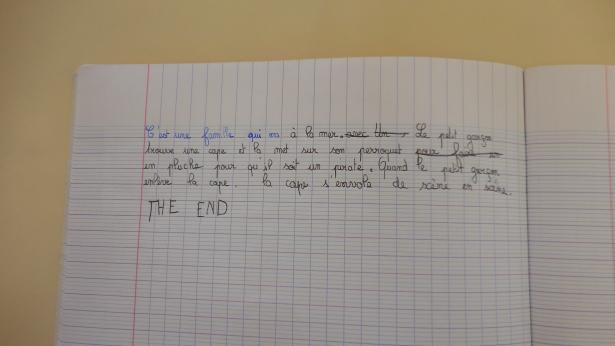 C'est une famille qui va à la mer. avec un Le petit garçon
trouve une cape et la met sur son perroquet pour faire un
en pluche pour qu'il soit un pirate. Quand le petit garçon
enlève la cape. la cape s'envole de scène en scène.
THE END